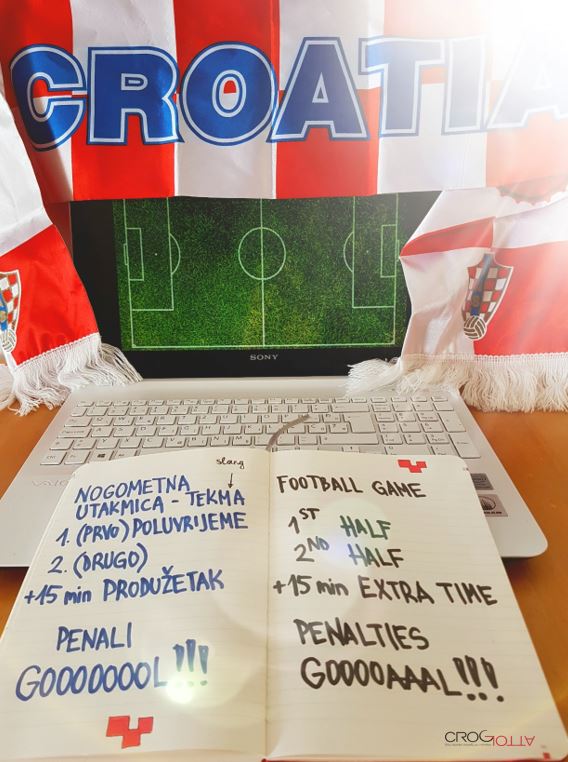 CROATIA
SONY
VAIO
slang
NOGOMETNA
UTAKMICA - TEKMA
1. (PRVO) POLUVRIJEME
2. (DRUGO)
+15 min PRODUŽETAK
PENALI
GOOOOOOOL!!!
FOOTBALL GAME
1ST HALF
2ND HALF
+15 min EXTRA TIME
PENALTIES
GOOOOAAAL!!!
CROLOTTA